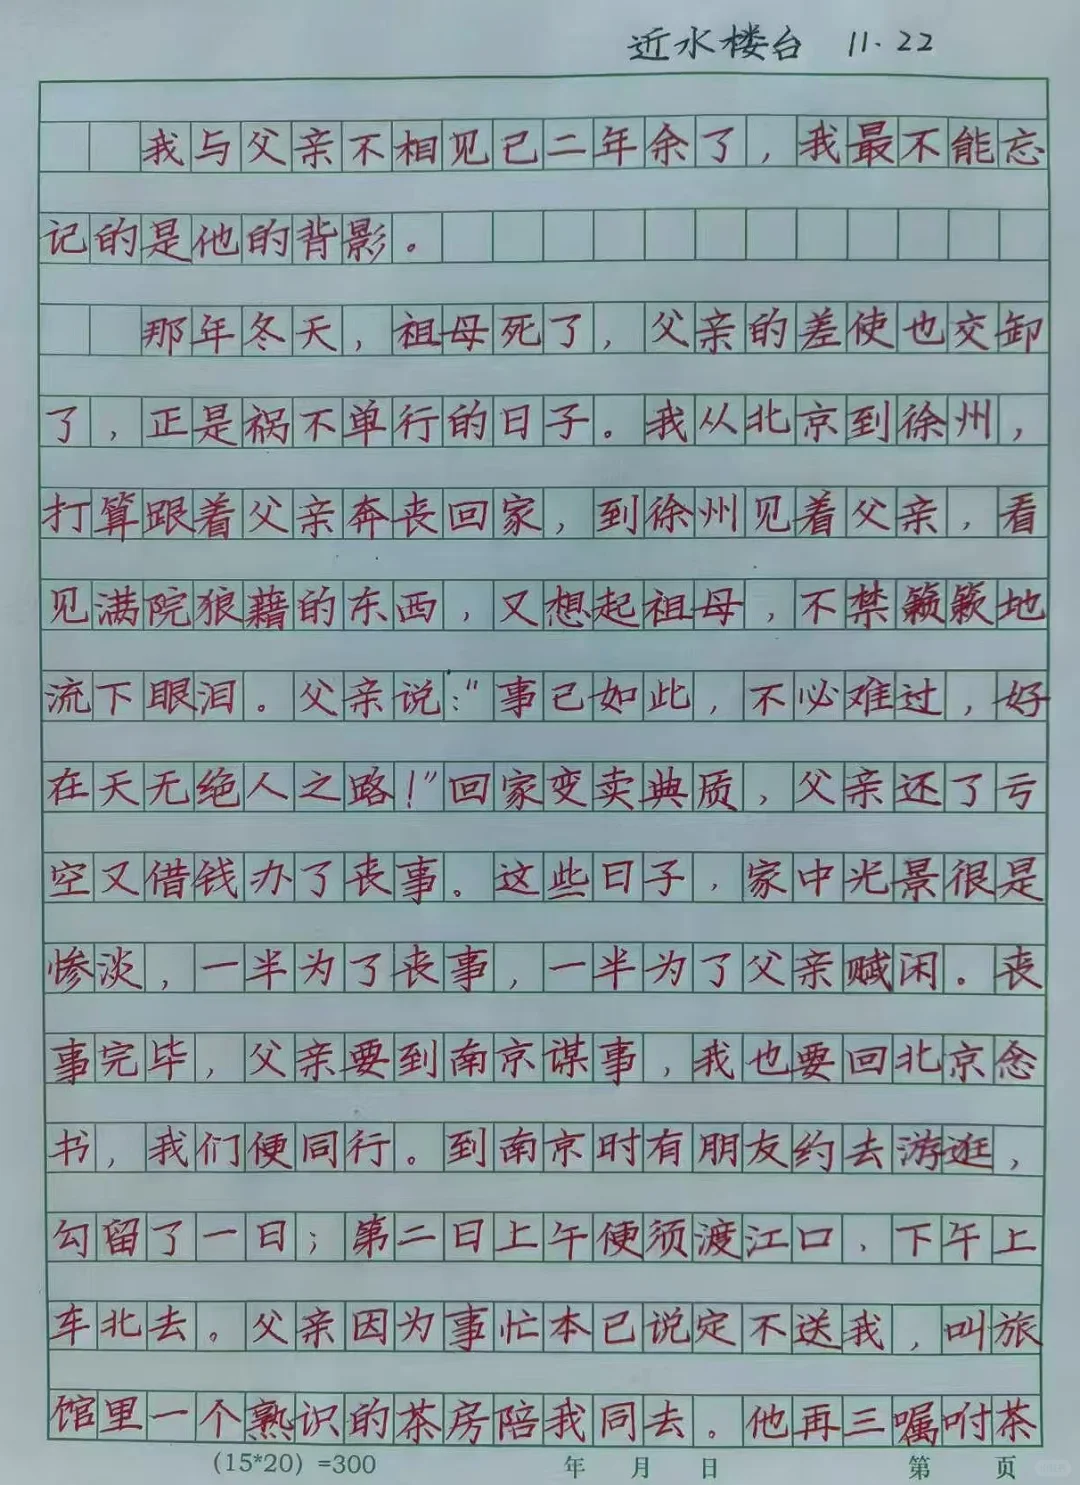 近水楼台 11.22
我与父亲不相见已二年余了，我最不能忘
记的是他的背影。
那年冬天，祖母死了，父亲的差使也交卸
了，正是祸不单行的日子。我从北京到徐州，
打算跟着父亲奔丧回家，到徐州见着父亲，看
见满院狼藉的东西，又想起祖母，不禁簌簌地
流下眼泪。父亲说："事已如此，不必难过，好
在天无绝人之路！"回家变卖典质，父亲还了亏
空又借钱办了丧事。这些日子，家中光景很是
惨淡，一半为了丧事，一半为了父亲赋闲。丧
事完毕，父亲要到南京谋事，我也要回北京念
书，我们便同行。到南京时有朋友约去游逛，
勾留了一日；第二日上午便须渡江口，下午上
车北去。父亲因为事忙本已说定不送我，叫旅
馆里一个熟识的茶房陪我同去。他再三嘱咐茶
(15*20)=300 年 月 日 第 页